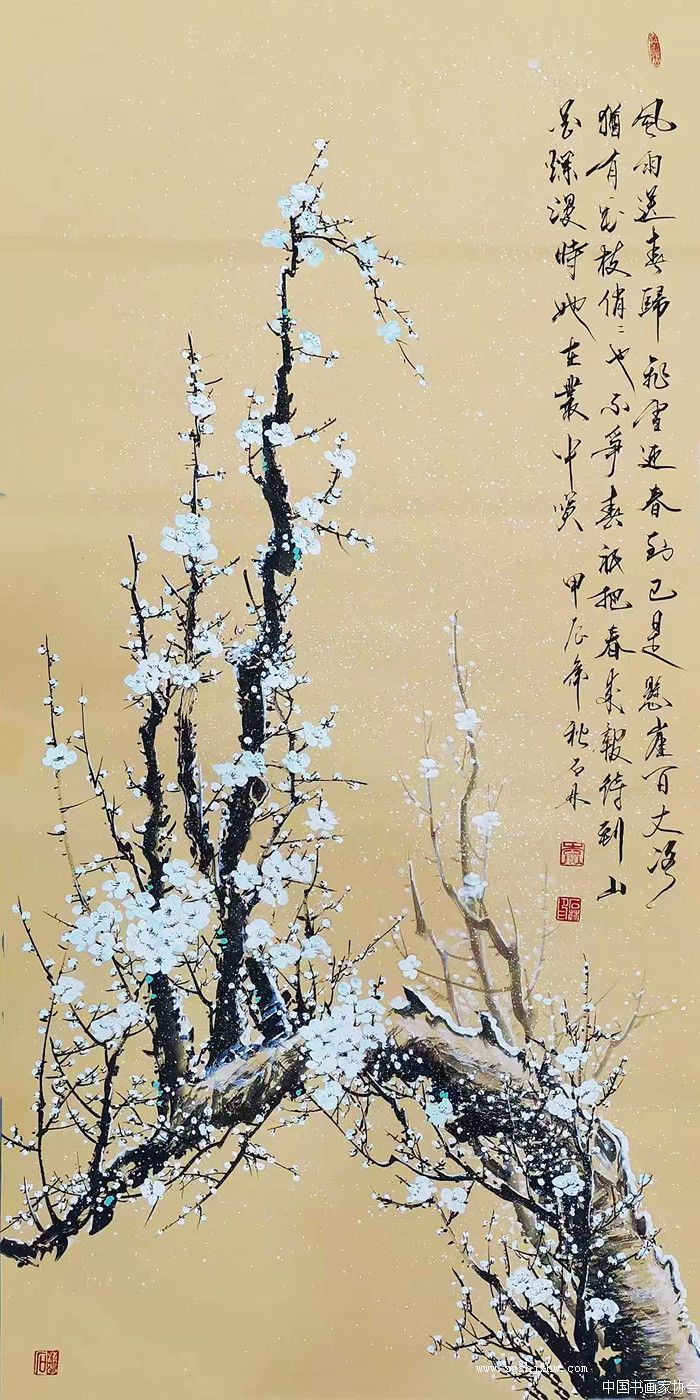 風雨送春歸飛雪迎春到已是懸崖百丈冰
猶有花枝俏〻也不爭春祇把春來報待到山
花爛漫時她在叢中笑 甲辰年秋石林
中国书画家协会